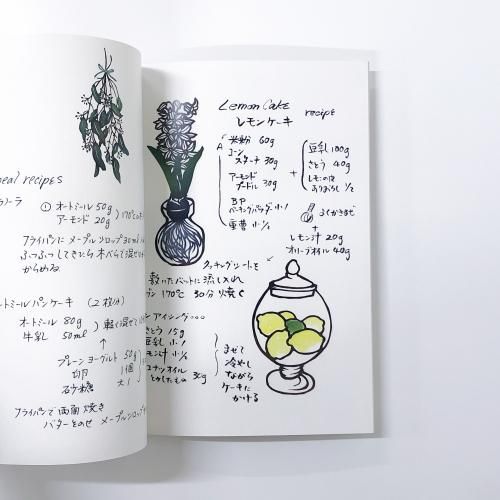 eal recipes
① オートミール 50g
アーモンド 20g
フライパンに メープルシロップ30ml
ふつふつしてきたら 木べらで混ぜな
からめる
トミールパンケーキ （2枚分）
オートミール 80g
牛乳 50ml
軽く混ぜて
↑
プレーンヨーグルト 50g
卵 1個
砂糖 大1
フライパンで 両面焼き
バターをのせ メープルシロップ
Lemon Cake recipe
レモンケーキ
A
米粉 60g
コーン
スターチ 30g
アーモンド
プードル 30g
BP
ベーキングパウダー 小1
重曹 小1/2
+
豆乳 100g
さとう 40g
レモンの皮
すりおろし 1/2
よくかきまぜ
+
レモン汁 20g
オリーブオイル 40g
クッキングシートを
敷いたバットに流し入れ
170℃ 30分 焼く
アイシング...
さとう 15g
豆乳 小1
オイル
とかしたもの 30g
まぜて
冷やし
ながら
ケーキに
かける